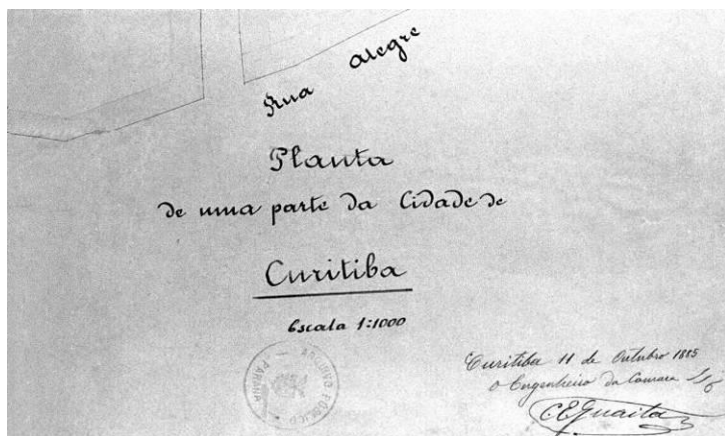 Rua Alegre
Planta
de uma parte da Cidade de
Curitiba
Escala 1:1000
Curitiba 11 de Outubro 1885
O Engenheiro da Camara
C E Guaita